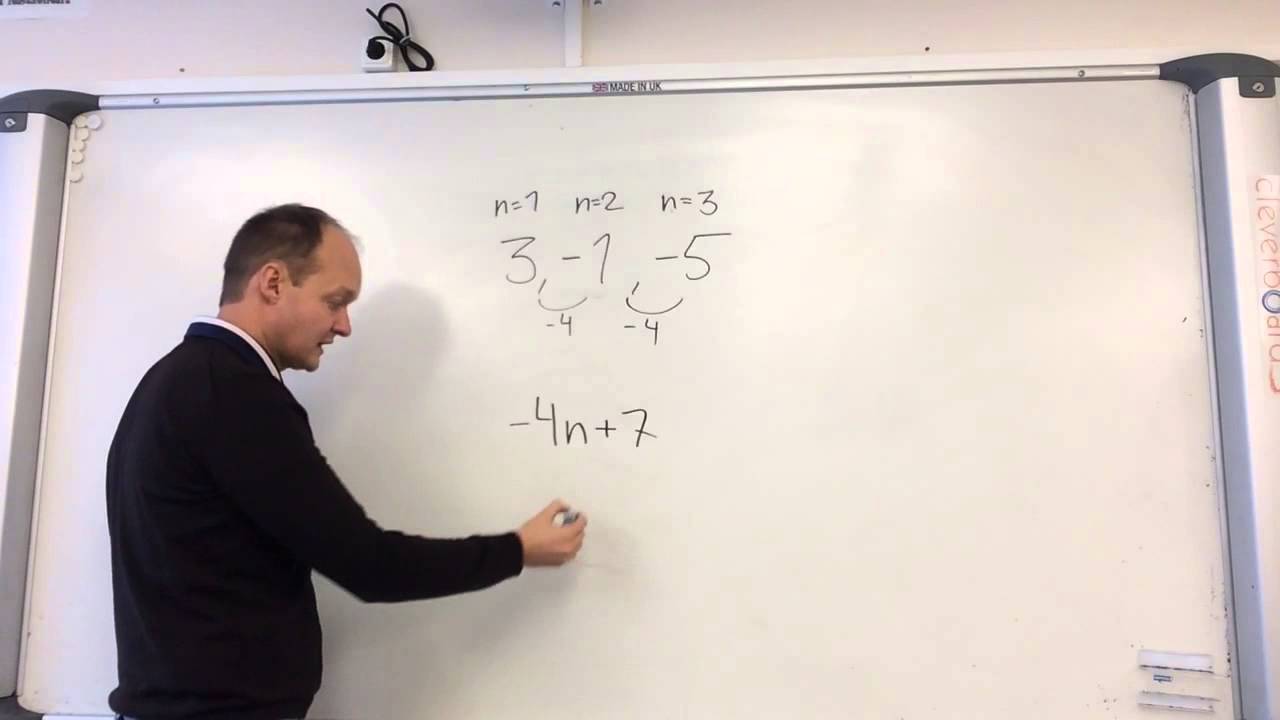 MADE IN UK
n=1 n=2 n=3
3, -1, -5
-4 -4
-4n+7
cleverboards